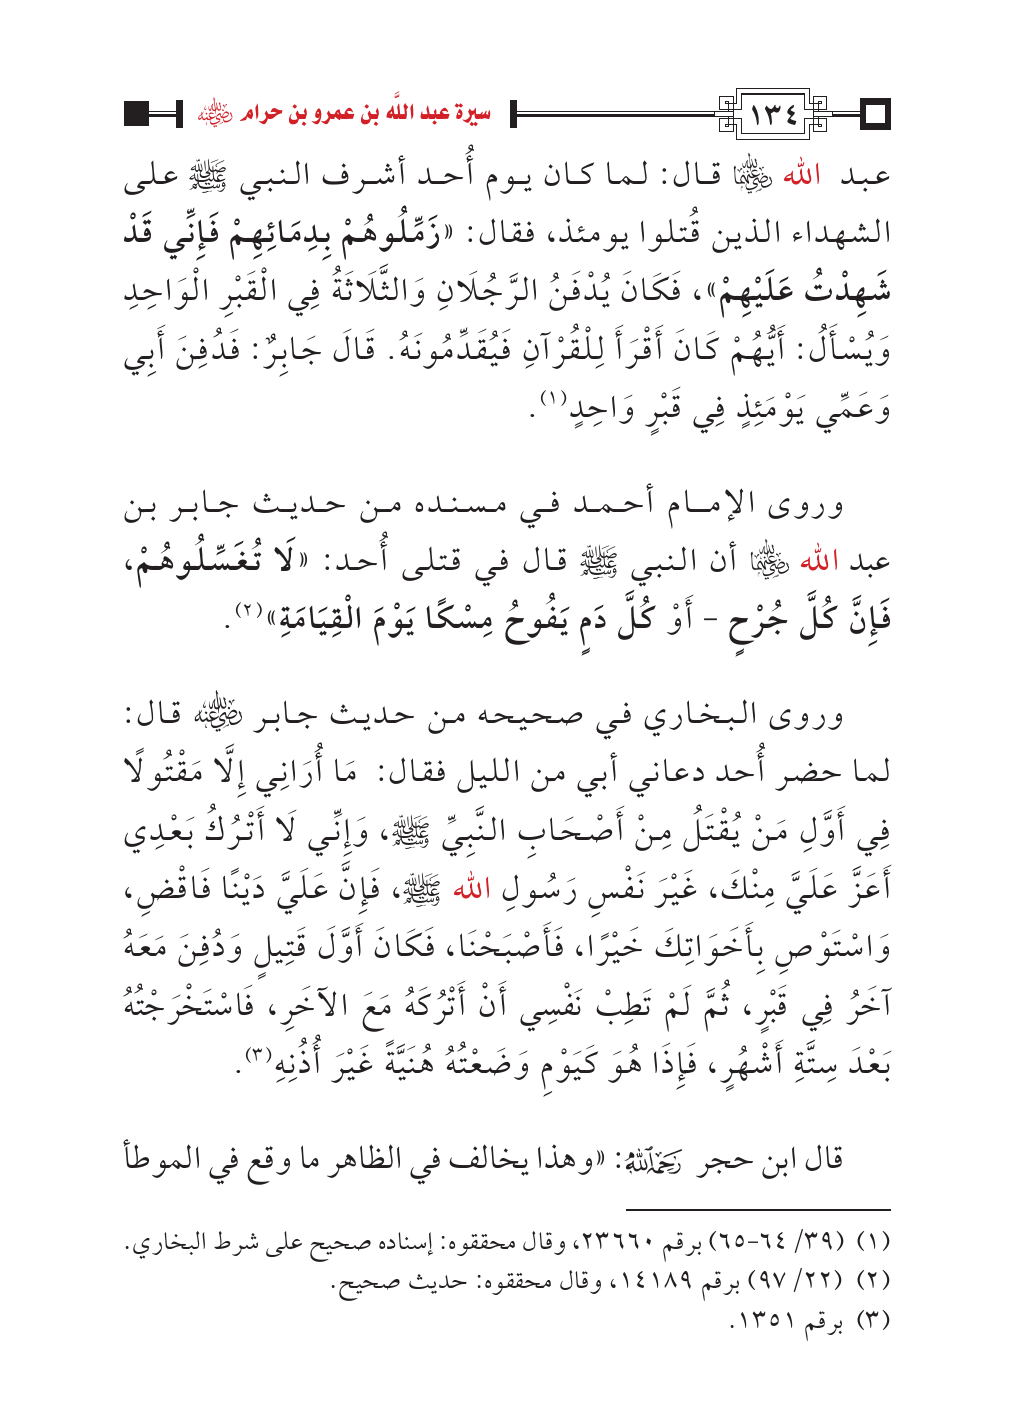 ١٣٤
سيرة عبد اللَّه بن عمرو بن حرام رضي الله عنه
عبد الله رضي الله عنهما قال: لما كان يوم أُحد أشرف النبي ﷺ على
الشهداء الذين قُتلوا يومئذ، فقال: «زَمِّلُوهُمْ بِدِمَائِهِمْ فَإِنِّي قَدْ
شَهِدْتُ عَلَيْهِمْ»، فَكَانَ يُدْفَنُ الرَّجُلَانِ وَالثَّلَاثَةُ فِي الْقَبْرِ الْوَاحِدِ
وَيُسْأَلُ: أَيُّهُمْ كَانَ أَقْرَأَ لِلْقُرْآنِ فَيُقَدِّمُونَهُ. قَالَ جَابِرٌ: فَدُفِنَ أَبِي
وَعَمِّي يَوْمَئِذٍ فِي قَبْرٍ وَاحِدٍ(١).
وروى الإمام أحمد في مسنده من حديث جابر بن
عبد الله رضي الله عنهما أن النبي ﷺ قال في قتلى أُحد: «لَا تُغَسِّلُوهُمْ،
فَإِنَّ كُلَّ جُرْحٍ - أَوْ كُلَّ دَمٍ يَفُوحُ مِسْكًا يَوْمَ الْقِيَامَةِ»(٢).
وروى البخاري في صحيحه من حديث جابر رضي الله عنه قال:
لما حضر أُحد دعاني أبي من الليل فقال: مَا أُرَانِي إِلَّا مَقْتُولًا
فِي أَوَّلِ مَنْ يُقْتَلُ مِنْ أَصْحَابِ النَّبِيِّ ﷺ، وَإِنِّي لَا أَتْرُكُ بَعْدِي
أَعَزَّ عَلَيَّ مِنْكَ، غَيْرَ نَفْسِ رَسُولِ الله ﷺ، فَإِنَّ عَلَيَّ دَيْنًا فَاقْضِ،
وَاسْتَوْصِ بِأَخَوَاتِكَ خَيْرًا، فَأَصْبَحْنَا، فَكَانَ أَوَّلَ قَتِيلٍ وَدُفِنَ مَعَهُ
آخَرُ فِي قَبْرٍ، ثُمَّ لَمْ تَطِبْ نَفْسِي أَنْ أَتْرُكَهُ مَعَ الآخَرِ، فَاسْتَخْرَجْتُهُ
بَعْدَ سِتَّةِ أَشْهُرٍ، فَإِذَا هُوَ كَيَوْمِ وَضَعْتُهُ هُنَيَّةً غَيْرَ أُذُنِهِ(٣).
قال ابن حجر رحمه الله: «وهذا يخالف في الظاهر ما وقع في الموطأ
(١) (٣٩/ ٦٤-٦٥) برقم ٢٣٦٦٠، وقال محققوه: إسناده صحيح على شرط البخاري.
(٢) (٢٢/ ٩٧) برقم ١٤١٨٩، وقال محققوه: حديث صحيح.
(٣) برقم ١٣٥١.